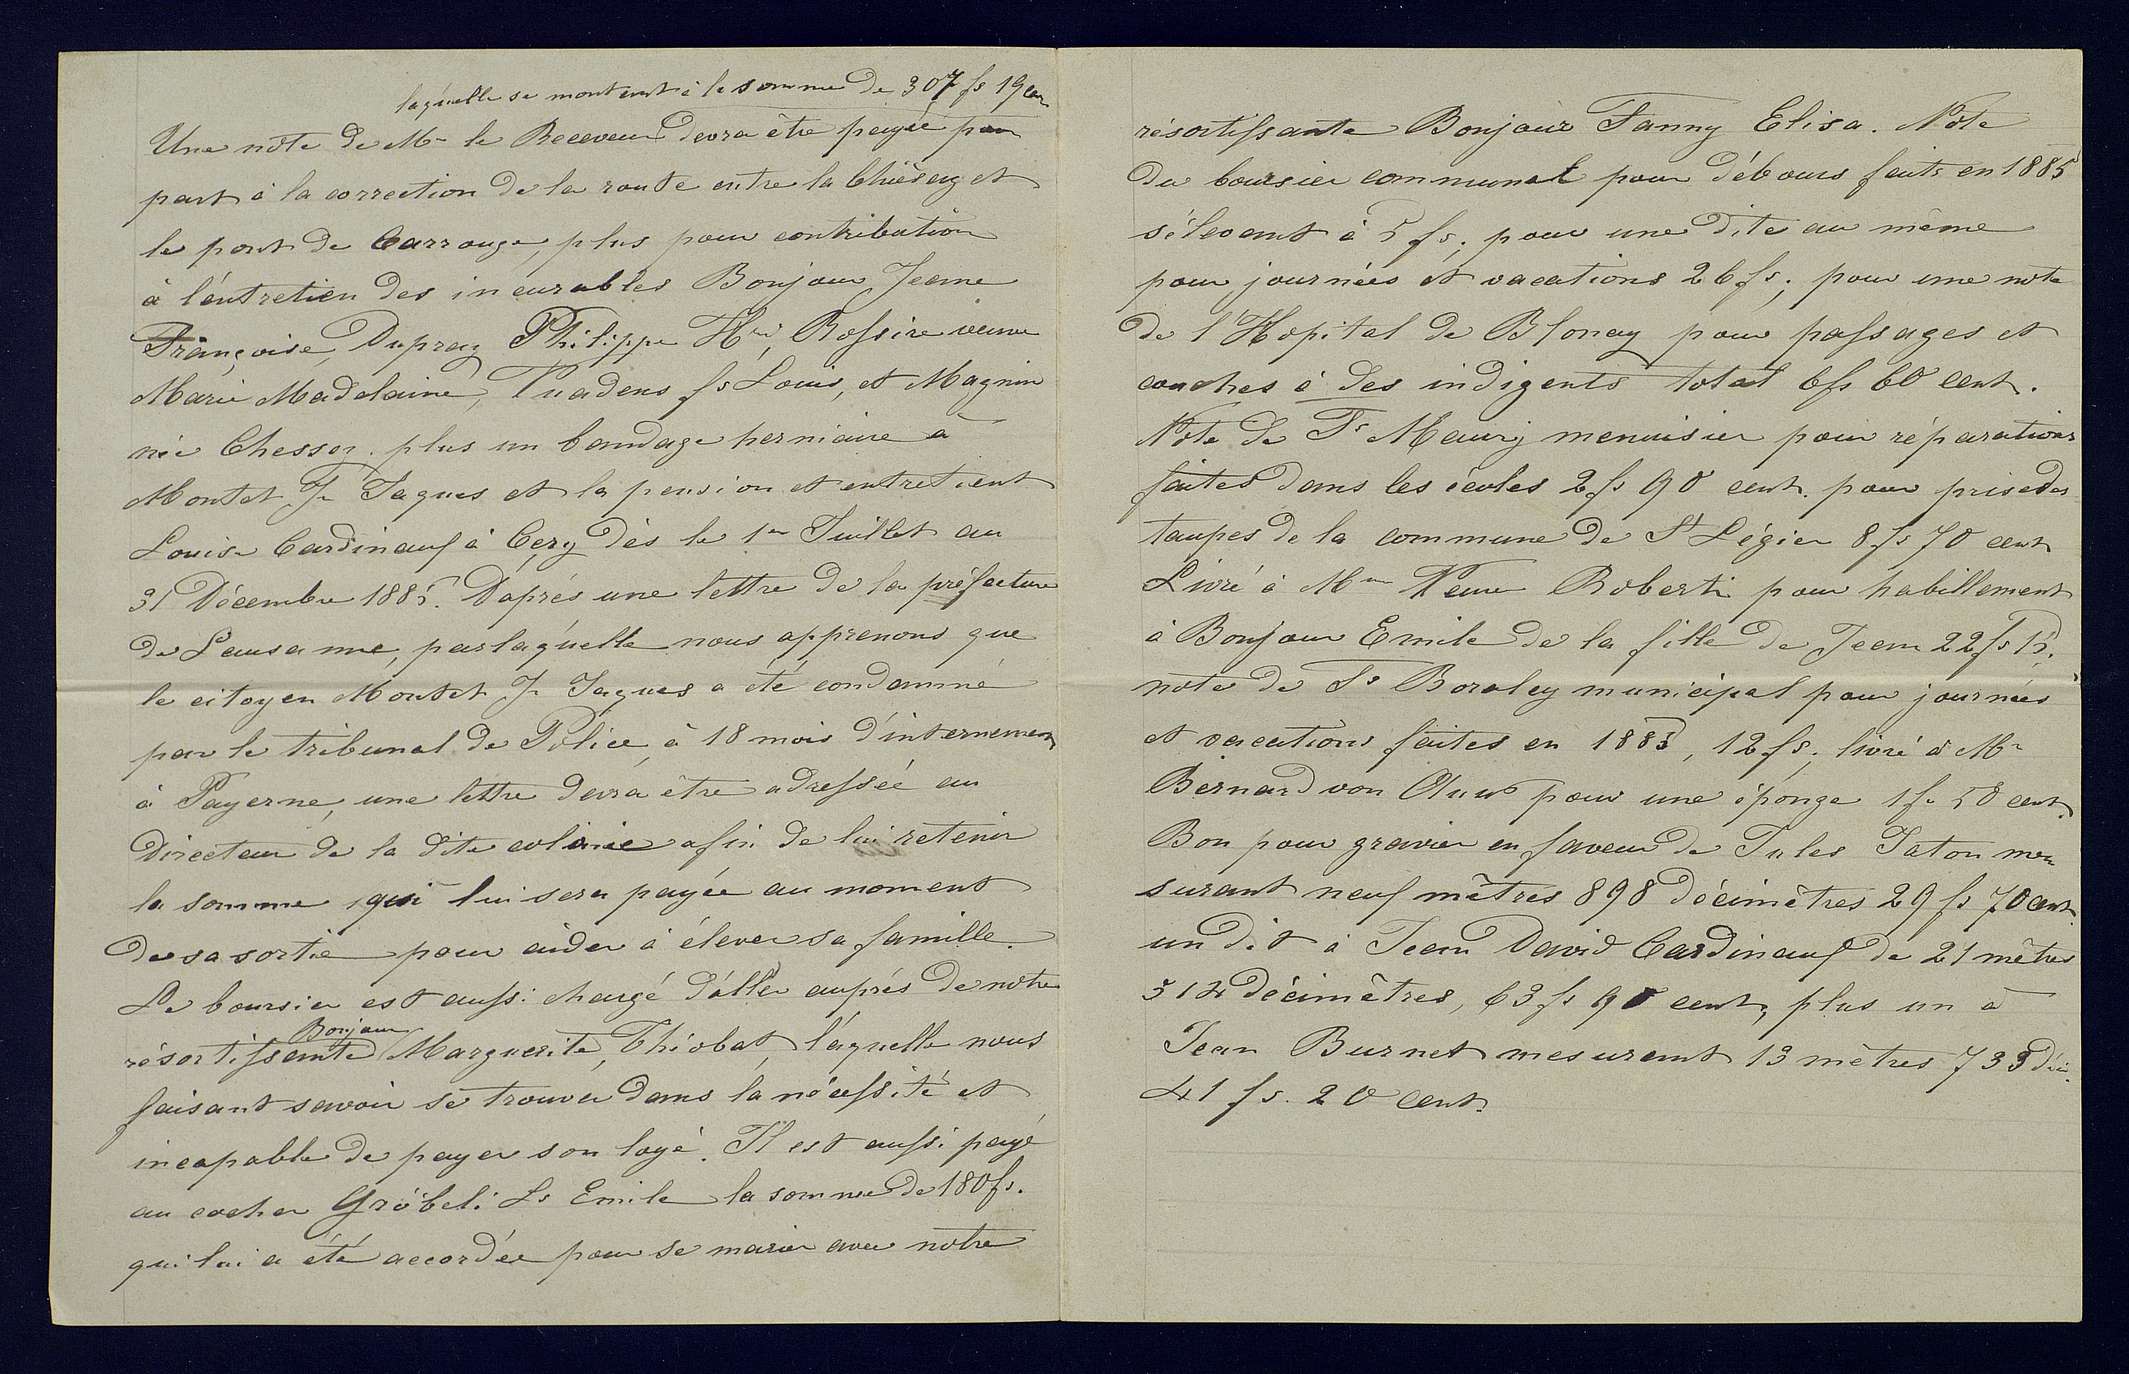 laquelle se montent à la somme de 307 fs 19 cen
Une note de Mr le Receveur devra être payée pour
part à la correction de la route entre la Chiésaz et
le pont de Carrouge, plus pour contribution
à l'éntretien des incurables Bonjour Jeane
Françoise, Dupraz Philippe Hri, Rossire veuve
Marie Madelaine, Vuadens fs Louis, et Magnin
née Chessex. plus un bandage herniaire à
Montet Jn Jaques et la pension et entretient
Louise Cardinauf à Cery dès le 1er Juillet au
31 Décembre 1885. D'aprés une lettre de la préfecture
de Lausanne, par laq'uelle nous apprenons que
le citoyen Montet Jn Jaques a été condamné
par le tribunal de Police, à 18 mois d'internement
à Payerne, une lettre devra être adressée au
Directeur de la dite colonie afin de lui retenir
la somme qui lui sera payée au moment
de sa sortie pour aider à élever sa famille.
Le boursier est aussi chargé d'áller auprés de notre
Bonjour
résortissante Marguerite, Thiobat, láquelle nous
faisant savoir sè trouver dans la nécessité et
incapable de payer son loyé. Il est aussi payé
au cocher Gröbeli Ls Emile la somme de 180 fs.
qui lui a été accordée pour se marier avec notre
résortissante Bonjour Fanny Elisa. Note
du boursier communal pour débours faits en 1885
s'élevant à 5 fs; pour une dite au même
pour journées et vacations 26 fs; pour une note
de l'Hopital de Blonay pour passages et
couches à des indigents total 6 fs 60 cent.
Note de Fs Maury menuisier pour réparations
faites dans les écoles 2 fs 90 cent. pour prise des
taupes de la commune de St Légier 8 fs 70 cent
Livré à Mme Veuve Roberti pour habillement
à Bonjour Emile de la fille de Jean 22 fs 15.
note de Fs Boraley municipal pour journées
et vacations faites en 1885, 12 fs; livré à Mr
Bernard von Auw pour une éponge 1 fr 50 cent.
Bon pour gravier en faveur de Jules Taton me
surant neuf mètres 898 décimètres 29 fs 70 cent
un dit à Jean David Cardinauf de 21 mètres
314 décimètres, 63 fs 90 cent, plus un à
Jean Burnet mesurant 13 mètres 733 déci.
41 fs. 20 cent.